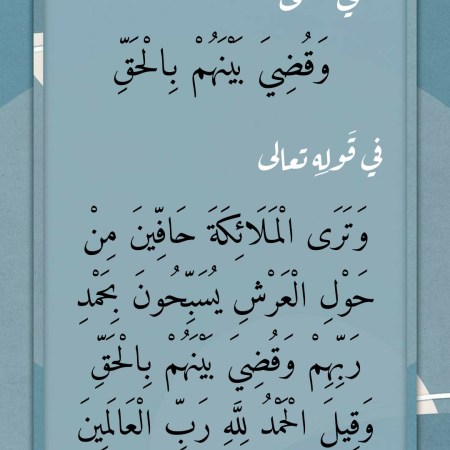 وَقُضِيَ بَيْنَهُمْ بِالْحَقِّ
في قَولِه تعالى
وَتَرَى الْمَلَائِكَةَ حَافِّينَ مِنْ
حَوْلِ الْعَرْشِ يُسَبِّحُونَ بِحَمْدِ
رَبِّهِمْ وَقُضِيَ بَيْنَهُمْ بِالْحَقِّ
وَقِيلَ الْحَمْدُ لِلَّهِ رَبِّ الْعَالَمِينَ